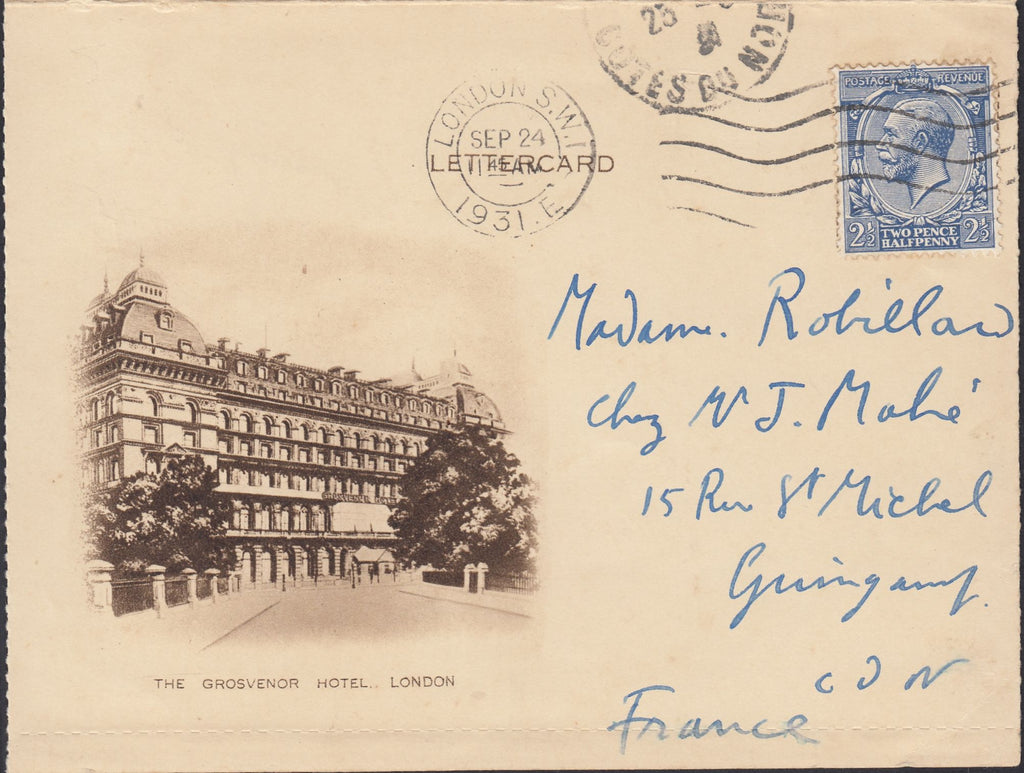 25
COTES DU NORD
LONDON S.W.1
SEP 24
11 45 AM
1931. E
LETTERCARD
POSTAGE REVENUE
2½ TWO PENCE HALFPENNY 2½
Madame. Robillard
chez Mr J. Mahé
15 Rue St Michel
Guingamp.
C D N
France
GROSVENOR HOTEL
THE GROSVENOR HOTEL, LONDON